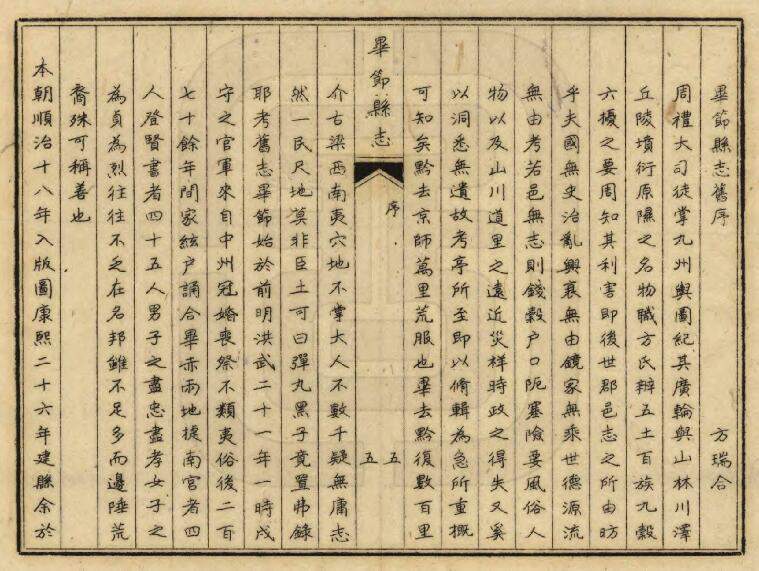 畢節縣志舊序
方瑞合
周禮大司徒掌九州輿圖紀其廣輪與山林川澤
丘陵墳衍原隰之名物職方氏辨五土百族九穀
六擾之要周知其利害即後世郡邑志之所由昉
乎夫國無史治亂興衰無由鏡家無乘世德源流
無由考若邑無志則錢穀户口阨塞險要風俗人
物以及山川道里之遠近災祥時政之得失又奚
以洞悉無遺故考亭所至即以脩輯為急所重概
可知矣黔去京師萬里荒服也畢去黔復數百里
畢節縣志
序
五
五
介古梁西南夷穴地不掌大人不數千疑無庸志
然一民尺地莫非臣土可曰彈丸黑子竟置弗錄
耶考舊志畢節始於前明洪武二十一年一時戍
守之官軍來自中州冠婚喪祭不類夷俗後二百
七十餘年間家絃户誦合畢赤兩地捷南宮者四
人登賢書者四十五人男子之盡忠盡孝女子之
為貞為烈往往不乏在名邦雖不足多而邊陲荒
裔殊可稱善也
本朝順治十八年入版圖康熙二十六年建縣余於